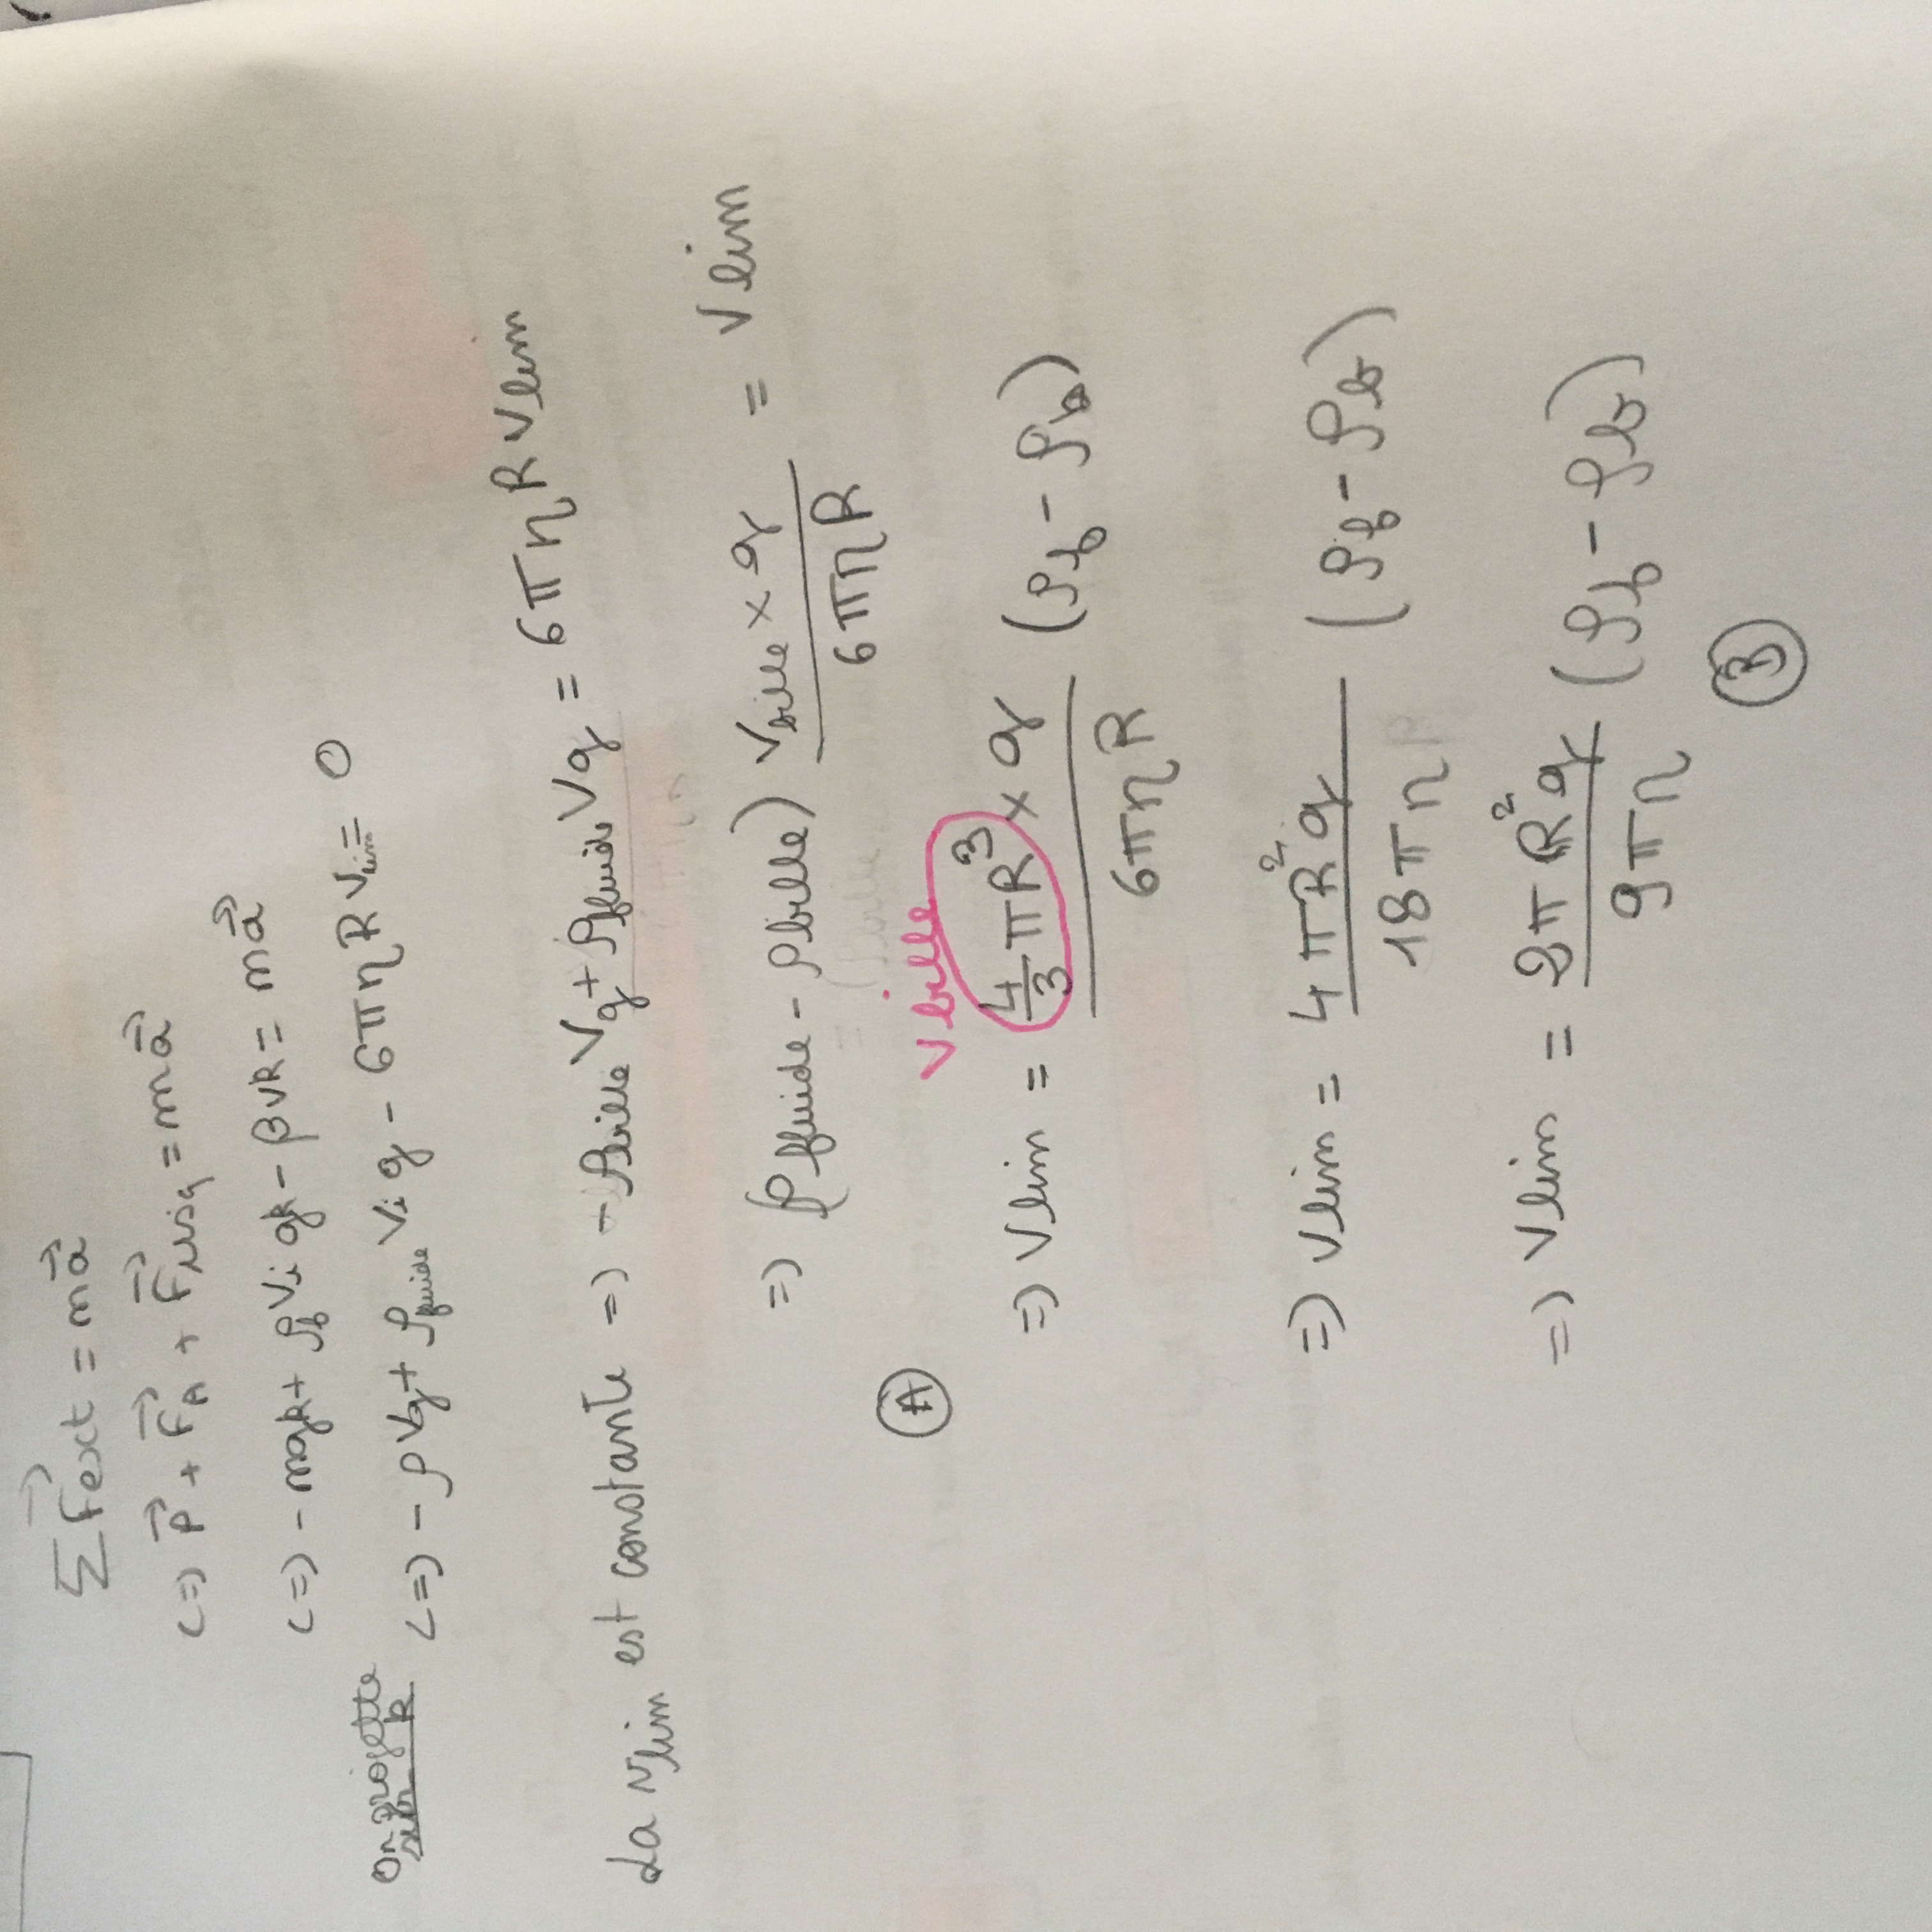 ∑F⃗ext = ma⃗
<=> P⃗ + F⃗A + F⃗visq = ma⃗
<=> - mgk + ρf Vi gk - βvk = ma⃗
On projette sur k <=> - ρVg + ρfluide Vi g - 6πηR Vlim = 0
La vlim est constante => - ρbille Vg + ρfluide Vg = 6πηR Vlim
=> (ρfluide - ρbille) Vbille × g / 6πηR = Vlim
A
Vbille
=> Vlim = 4/3 πR³ × g / 6πηR (ρf - ρb)
=> Vlim = 4πR²g / 18πη (ρf - ρb)
=> Vlim = 2πR²g / 9πη (ρf - ρb)
3